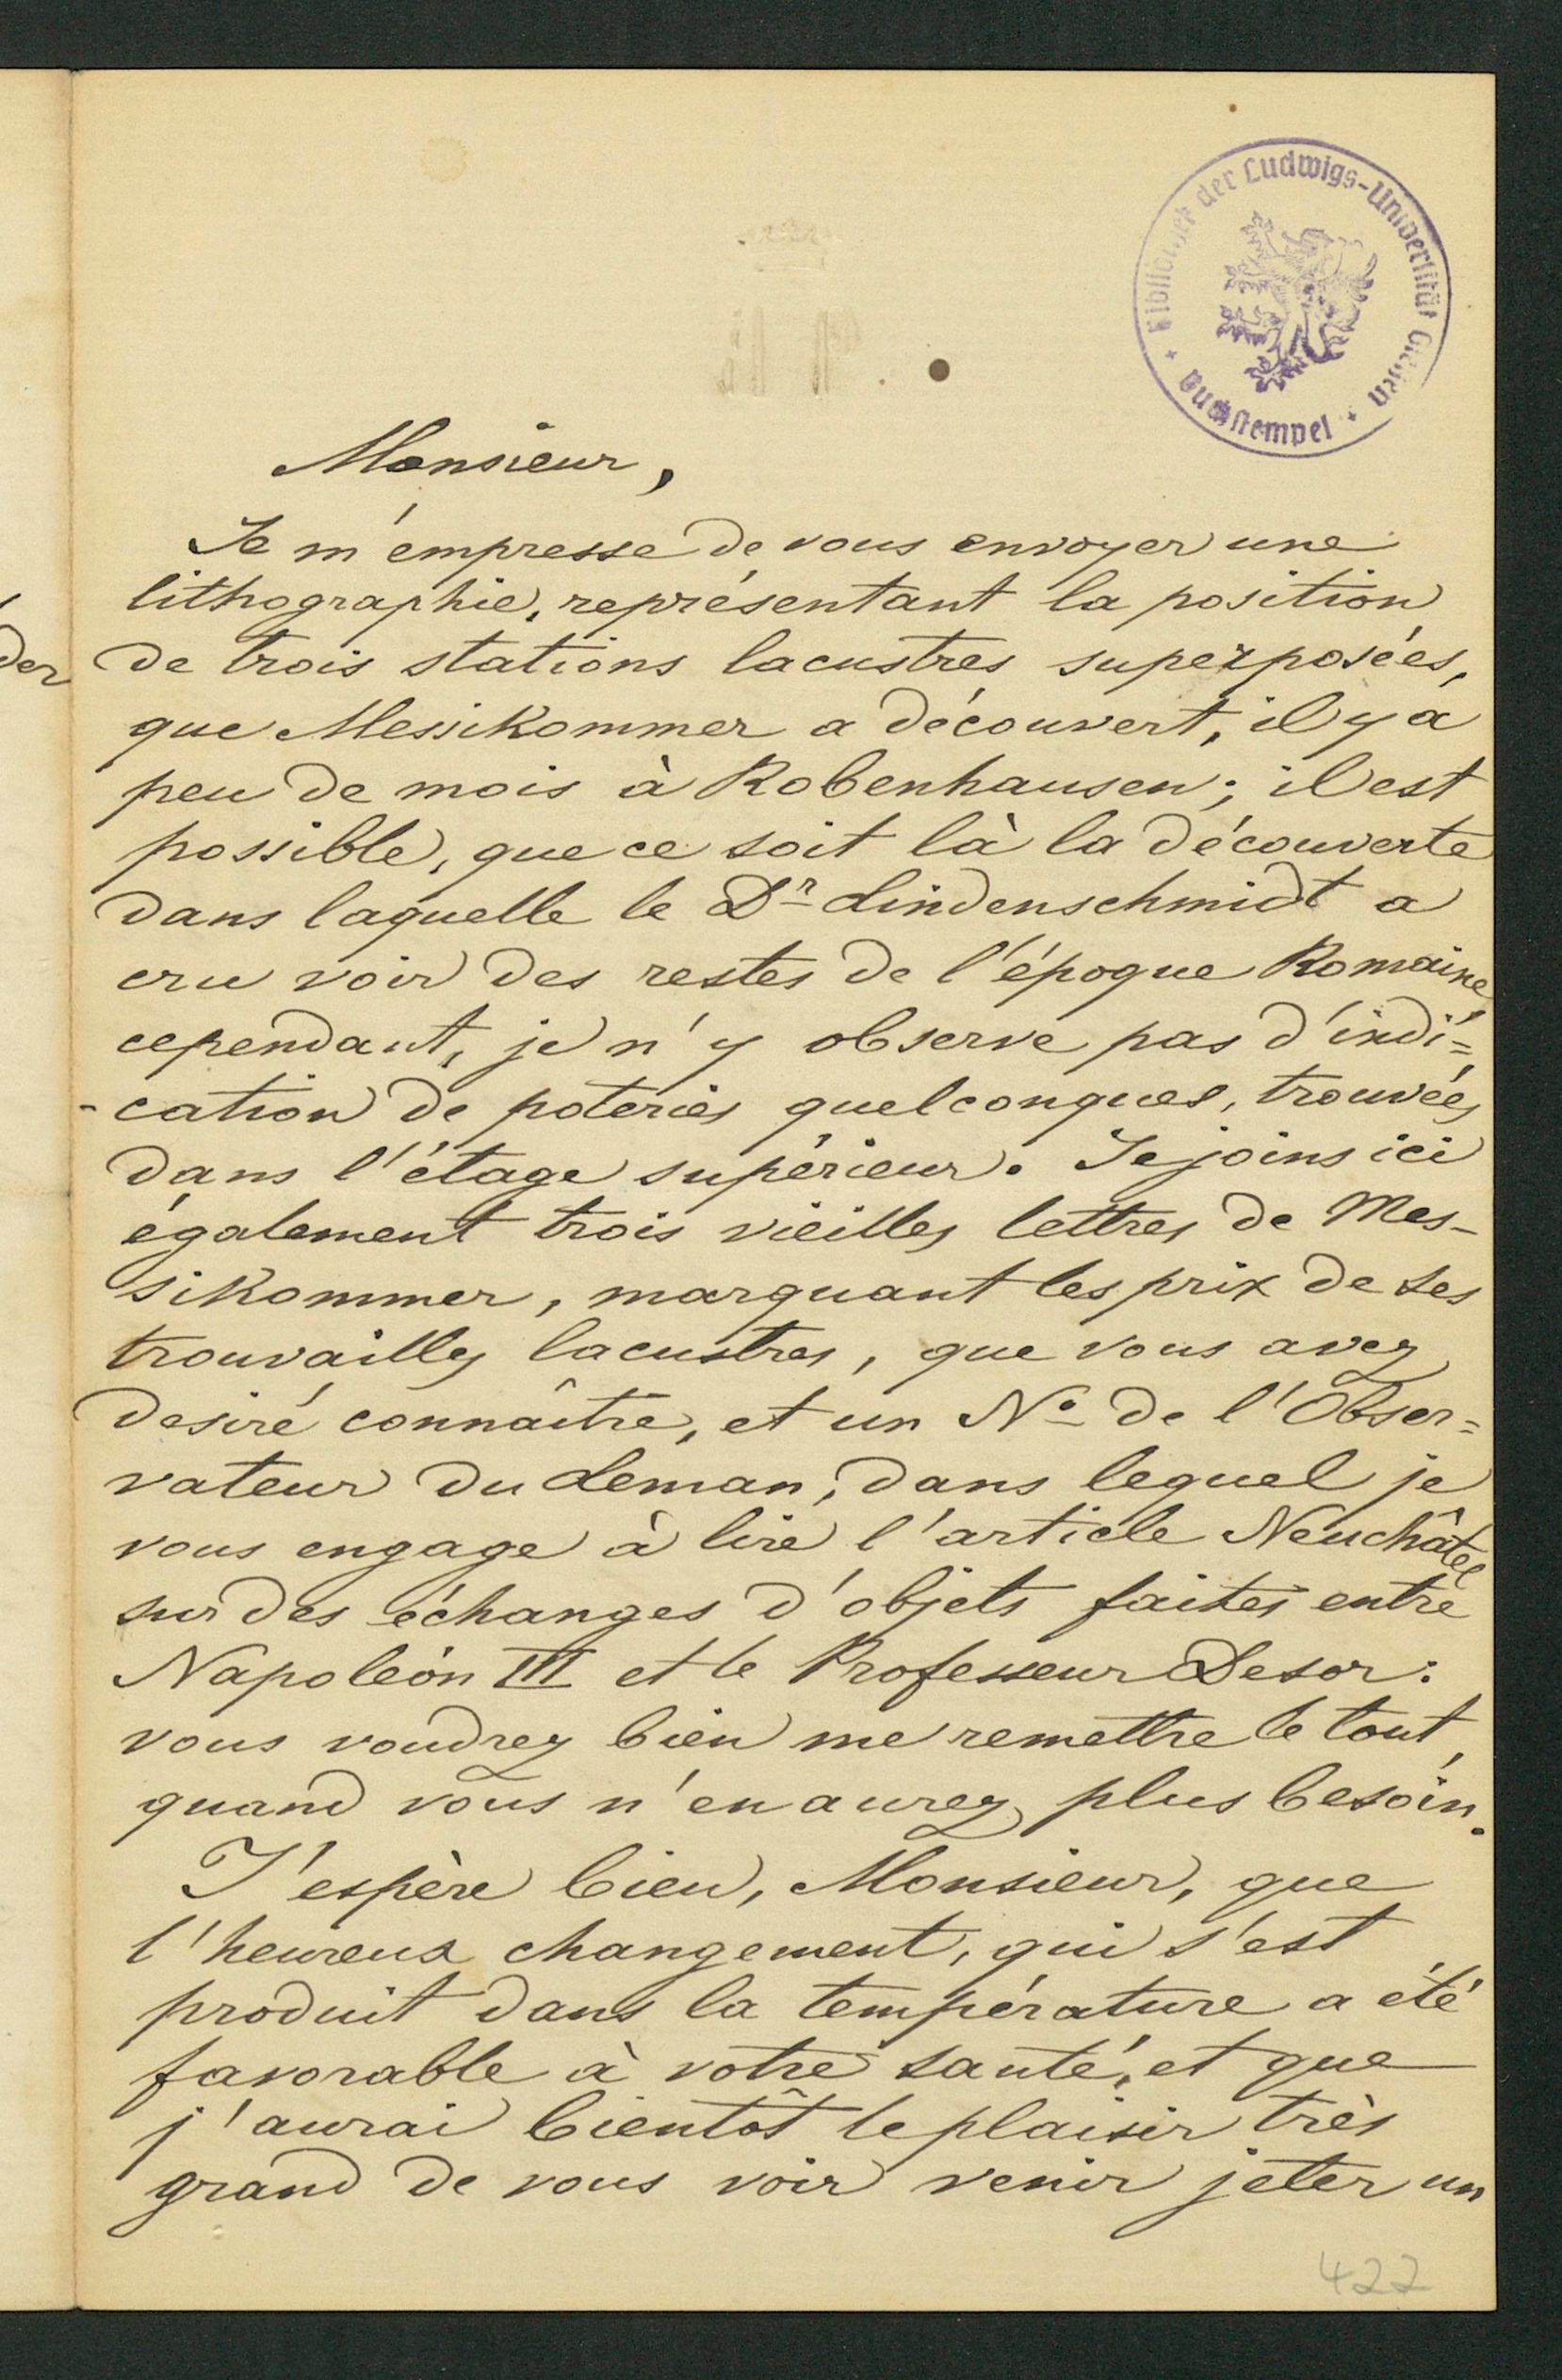 Bibliothek der Ludwigs-Universität Gießen
Buchstempel
Monsieur,
Je m'empresse de vous envoyer une
lithographie, représentant la position
de trois stations lacustres superposées,
que Messikommer a découvert, il y a
peu de mois à Robenhausen; il est
possible, que ce soit là la découverte
dans laquelle le Dr Lindenschmidt a
cru voir des restes de l'époque Romaine,
cependant, je n'y observe pas d'indi=
-cation de poteries quelconques, trouvées
dans l'étage supérieur. Je joins ici
également trois vieilles lettres de Mes-
sikommer, marquant les prix de ses
trouvailles lacustres, que vous avez
desiré connaître, et un No de l'Obser=
vateur du Leman, dans lequel je
vous engage à lire l'article Neuchâtel
sur des échanges d'objets faites entre
Napoléon III et le Professeur Desor:
vous voudrez bien me remettre le tout,
quand vous n'en aurez plus besoin.
J'espère bien, Monsieur, que
l'heureux changement, qui s'est
produit dans la température a été
favorable à votre santé, et que
j'aurai bientôt le plaisir très
grand de vous voir venir jeter un
422
der